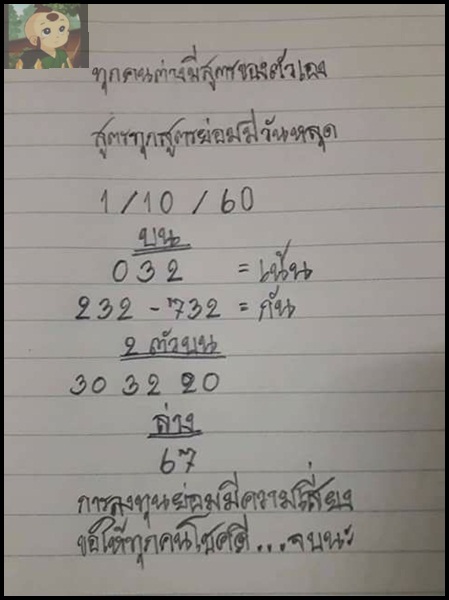 ทุกคนต่างมีสูตรของตัวเอง
สูตรทุกสูตรย่อมมีวันหลุด
1/10/60
บน
032 = เน้น
232 - 732 = กัน
2 ตัวบน
30 32 20
ล่าง
67
การลงทุนย่อมมีความเสี่ยง
ขอให้ทุกคนโชคดี...จบนะ